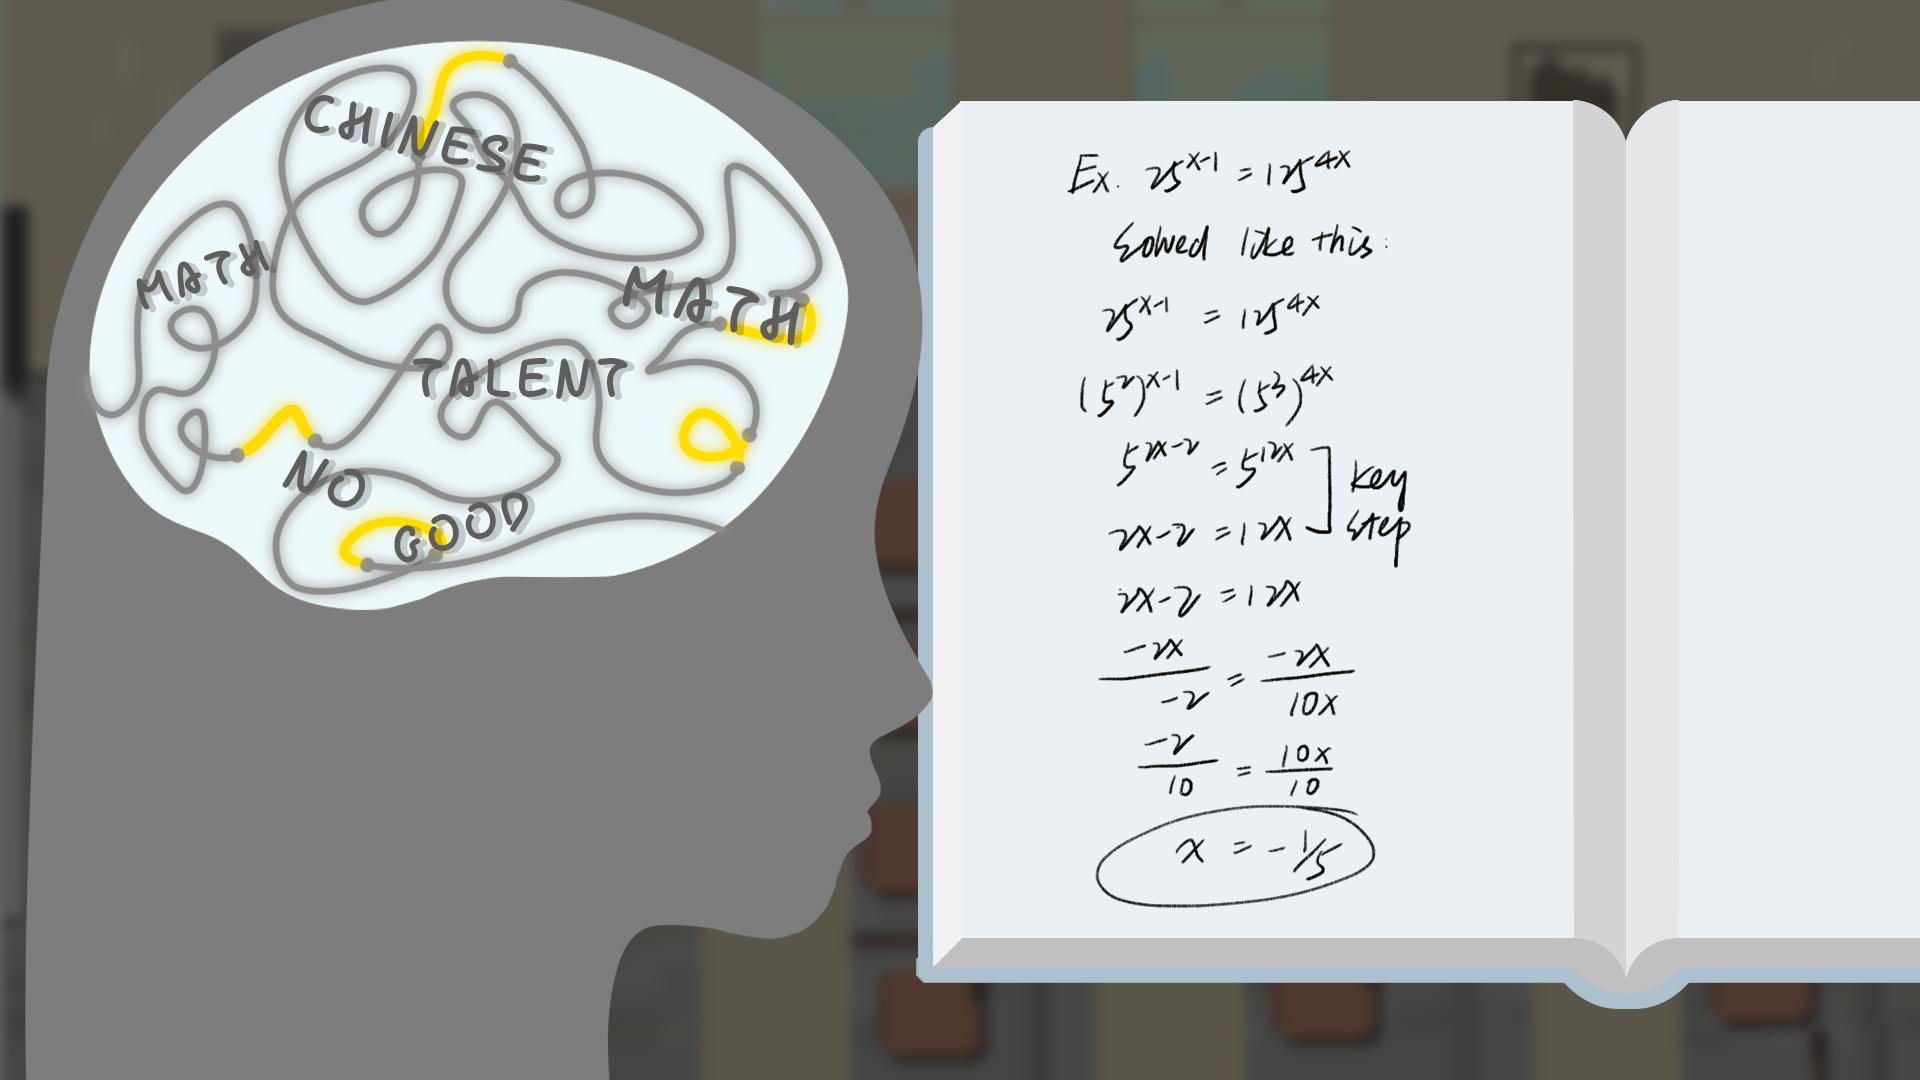 CHINESE
MATH
MATH
TALENT
NO
GOOD
Ex. 25^{x-1} = 125^{4x}
Solved like this:
25^{x-1} = 125^{4x}
(5^2)^{x-1} = (5^3)^{4x}
5^{2x-2} = 5^{12x}
key
step
2x-2 = 12x
2x-2 = 12x
-2x/-2 = -2x/10x
-2/10 = 10x/10
x = -1/5